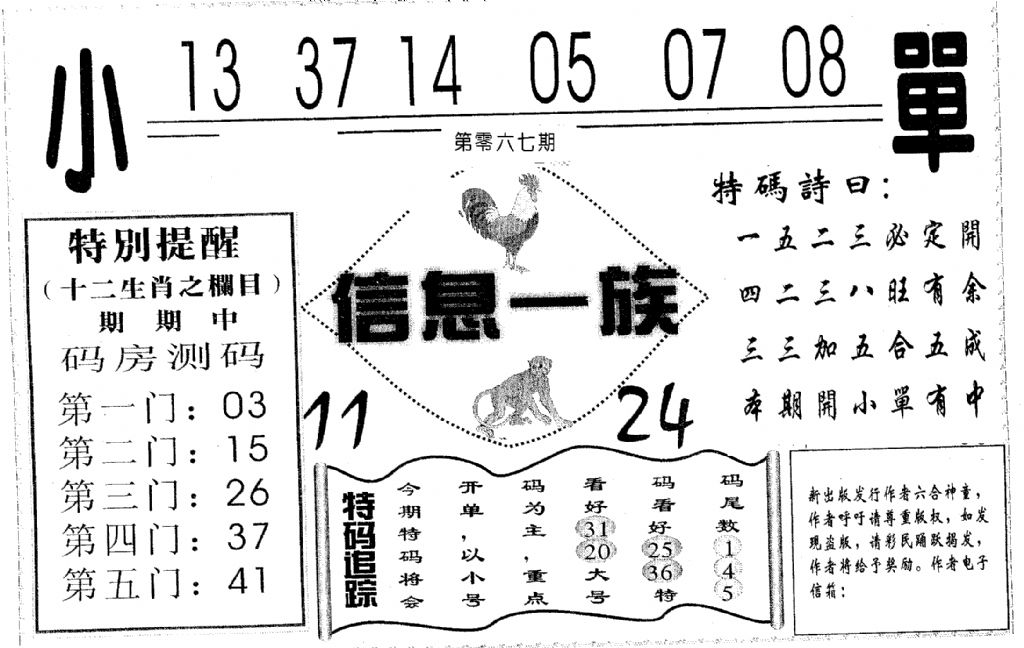 小
13 37 14 05 07 08
單
第零六七期
特別提醒
（十二生肖之欄目）
期期中
码房测码
第一门：03
第二门：15
第三门：26
第四门：37
第五门：41
信息一族
11
24
特碼詩曰：
一五二三必定開
四二三八旺有余
三三加五合五成
本期開小單有中
特码追踪
今期特码将会
开单，以小号
码为主，重点
看好31 20大号
码看好25 36特
码尾数1 4 5
新出版发行作者六合神童，
作者呼吁请尊重版权，如发
现盗版，请彩民踊跃揭发，
作者将给予奖励。作者电子
信箱：